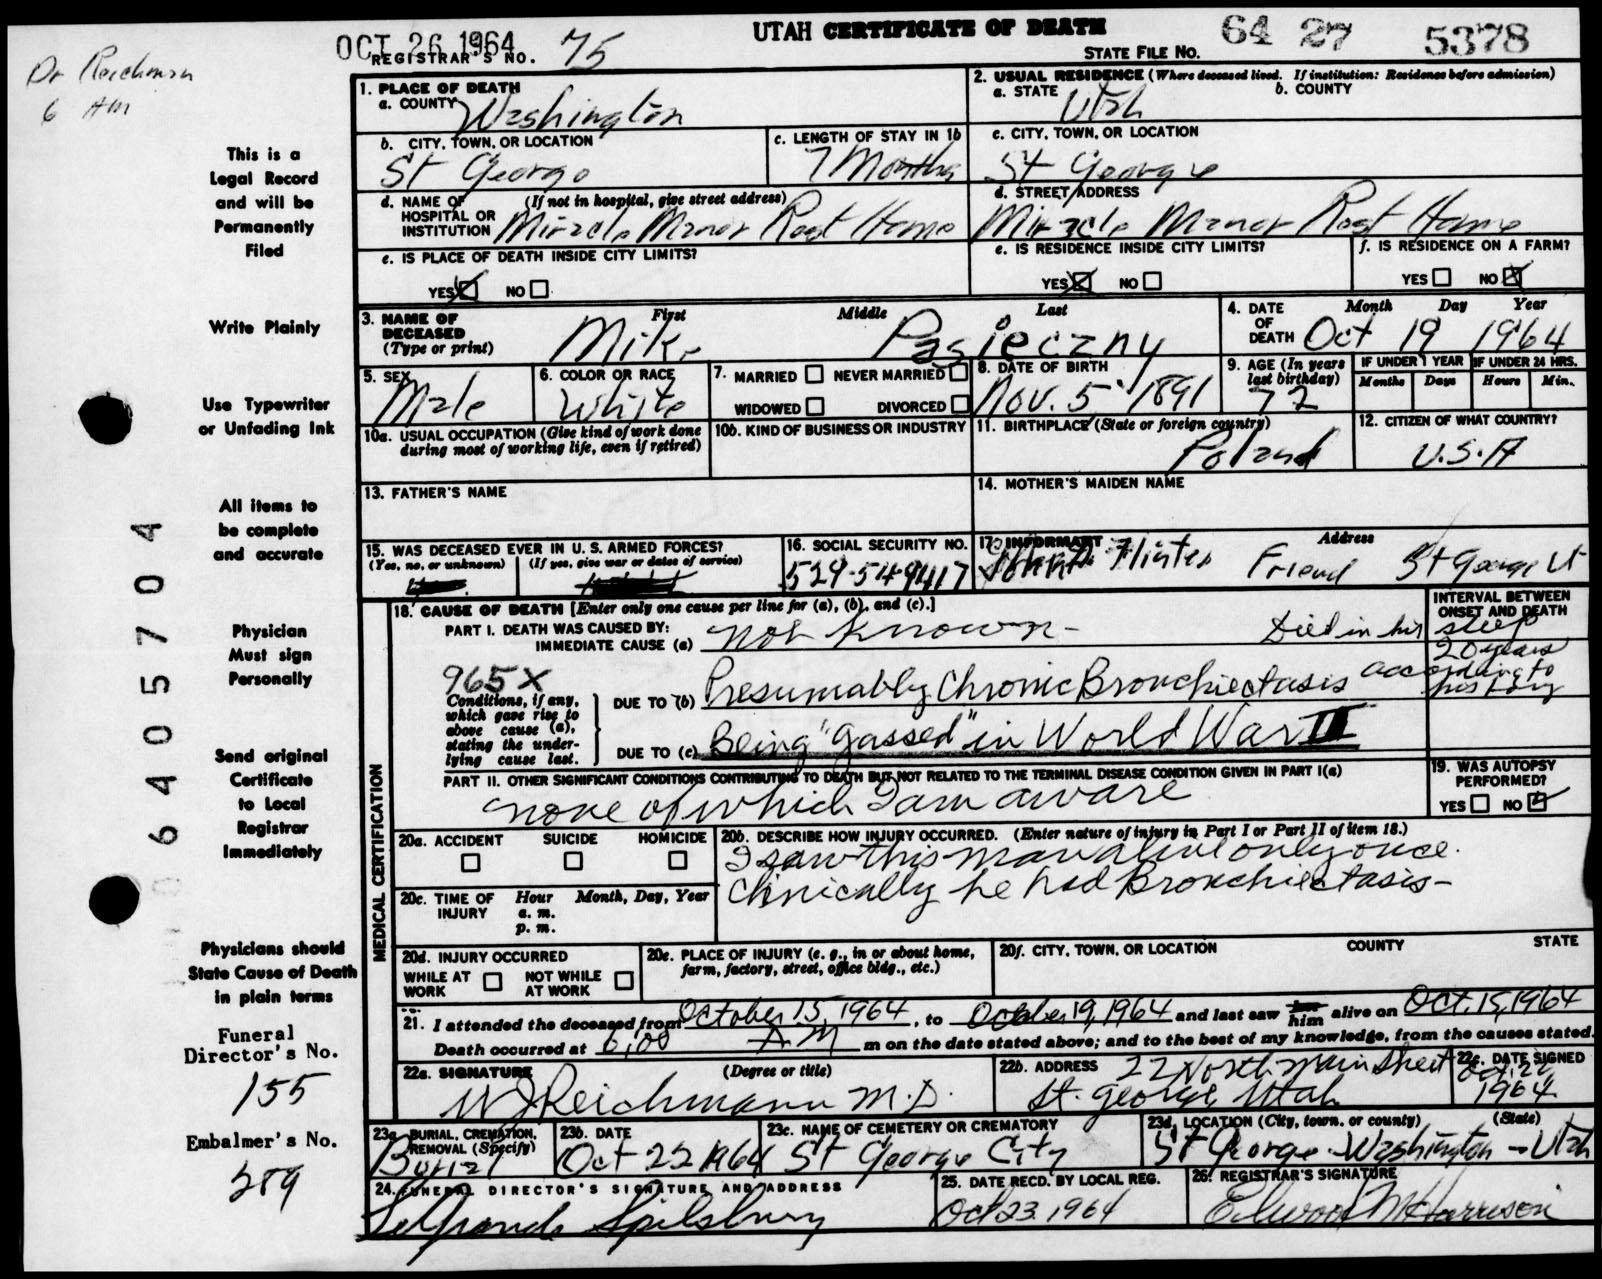 UTAH CERTIFICATE OF DEATH
64 27 5378
OCT 26 1964
REGISTRAR'S NO. 75
STATE FILE NO.
Dr Reichman
6 AM
This is a
Legal Record
and will be
Permanently
Filed
Write Plainly
Use Typewriter
or Unfading Ink
All items to
be complete
and accurate
Physician
Must sign
Personally
Send original
Certificate
to Local
Registrar
Immediately
Physicians should
State Cause of Death
in plain terms
Funeral
Director's No.
155
Embalmer's No.
289
6405704
1. PLACE OF DEATH
a. COUNTY Washington
2. USUAL RESIDENCE (Where deceased lived. If institution: Residence before admission)
a. STATE Utah b. COUNTY
b. CITY, TOWN, OR LOCATION
St George
c. LENGTH OF STAY IN 1b
7 Months
c. CITY, TOWN, OR LOCATION
St George
d. NAME OF HOSPITAL OR INSTITUTION (If not in hospital, give street address)
Miracle Manor Rest Home
d. STREET ADDRESS
Miracle Manor Rest Home
e. IS PLACE OF DEATH INSIDE CITY LIMITS?
YES NO
e. IS RESIDENCE INSIDE CITY LIMITS?
YES NO
f. IS RESIDENCE ON A FARM?
YES NO
3. NAME OF DECEASED (Type or print)
First Middle Last
Mike Pasieczny
4. DATE OF DEATH Month Day Year
Oct 19 1964
5. SEX
Male
6. COLOR OR RACE
White
7. MARRIED NEVER MARRIED
WIDOWED DIVORCED
8. DATE OF BIRTH
Nov. 5, 1891
9. AGE (In years last birthday)
72
IF UNDER 1 YEAR IF UNDER 24 HRS.
Months Days Hours Min.
10a. USUAL OCCUPATION (Give kind of work done during most of working life, even if retired)
10b. KIND OF BUSINESS OR INDUSTRY
11. BIRTHPLACE (State or foreign country)
Poland
12. CITIZEN OF WHAT COUNTRY?
U.S.A
13. FATHER'S NAME
14. MOTHER'S MAIDEN NAME
15. WAS DECEASED EVER IN U. S. ARMED FORCES?
(Yes, no, or unknown) (If yes, give war or dates of service)
16. SOCIAL SECURITY NO.
529-549417
17. INFORMANT Address
Friend St George Ut
MEDICAL CERTIFICATION
18. CAUSE OF DEATH [Enter only one cause per line for (a), (b), and (c).]
INTERVAL BETWEEN ONSET AND DEATH
PART I. DEATH WAS CAUSED BY:
IMMEDIATE CAUSE (a) not known - Died in his sleep
965X
Conditions, if any, which gave rise to above cause (a), stating the underlying cause last.
DUE TO (b) Presumably Chronic Bronchiectasis 20 years according to history
DUE TO (c) Being "gassed" in World War II
PART II. OTHER SIGNIFICANT CONDITIONS CONTRIBUTING TO DEATH BUT NOT RELATED TO THE TERMINAL DISEASE CONDITION GIVEN IN PART I(a)
none of which I am aware
19. WAS AUTOPSY PERFORMED?
YES NO
20a. ACCIDENT SUICIDE HOMICIDE
20b. DESCRIBE HOW INJURY OCCURRED. (Enter nature of injury in Part I or Part II of item 18.)
I saw this man alive only once.
Clinically he had Bronchiectasis-
20c. TIME OF INJURY Hour Month, Day, Year
a. m.
p. m.
20d. INJURY OCCURRED
WHILE AT WORK NOT WHILE AT WORK
20e. PLACE OF INJURY (e. g., in or about home, farm, factory, street, office bldg., etc.)
20f. CITY, TOWN, OR LOCATION COUNTY STATE
21. I attended the deceased from October 15, 1964, to October 19, 1964 and last saw him alive on Oct. 15, 1964
Death occurred at 6:00 A M m on the date stated above; and to the best of my knowledge, from the causes stated.
22a. SIGNATURE (Degree or title)
W J Reichmann M.D.
22b. ADDRESS 22 North Main Street
St. George Utah
22c. DATE SIGNED
Oct. 22 1964
23a BURIAL, CREMATION, REMOVAL (Specify)
Burial
23b. DATE
Oct 22 1964
23c. NAME OF CEMETERY OR CREMATORY
St George City
23d. LOCATION (City, town, or county) (State)
St George-Washington-Utah
24. FUNERAL DIRECTOR'S SIGNATURE AND ADDRESS
Spilsbury
25. DATE RECD. BY LOCAL REG.
Oct 23. 1964
26. REGISTRAR'S SIGNATURE
Elwood M Harrison